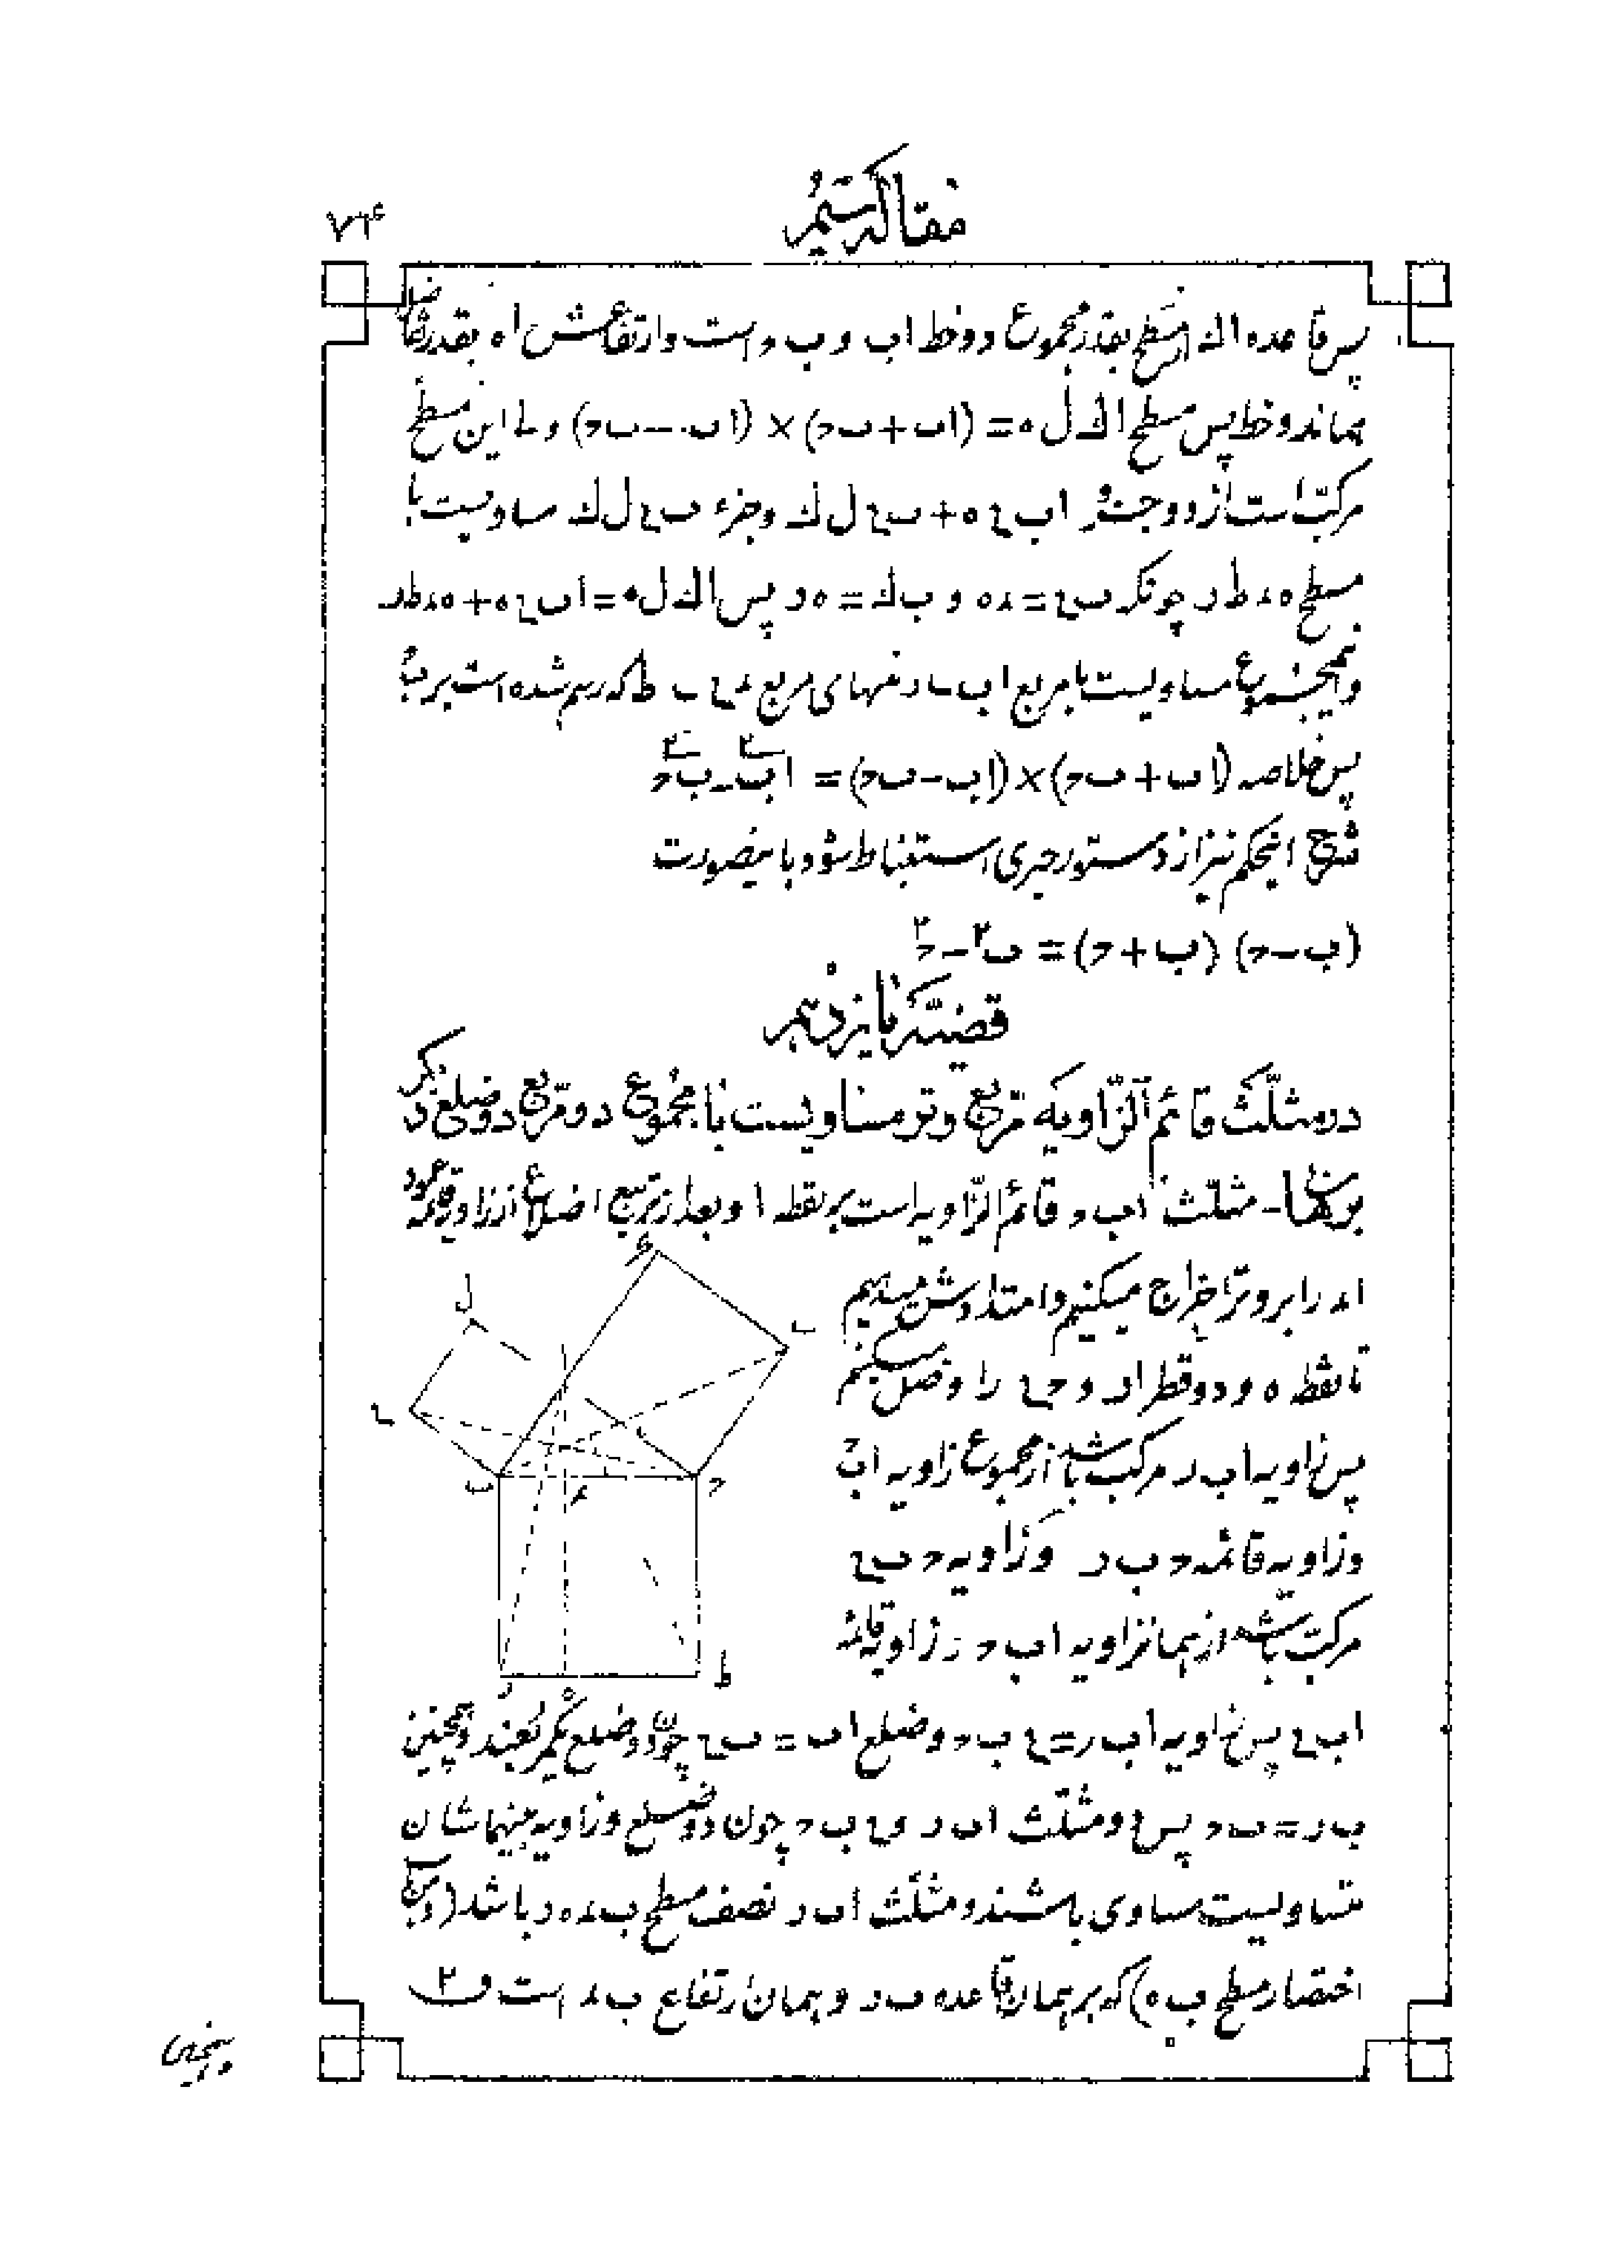 مقاله سیم
۷۴
پس قاعده اك این سطح بقدر مجموع دو خط اب و ب ح است و ارتفاعش ا ه بقدر تفاضل
همان دو خط پس مسطح اك ل ه = (اب + ب ح) × (اب - ب ح) ولی این مسطح
مرکبست از دو جزؤ اب ع ه + ب ع ل ك و جزء ب ع ل ك مساویست با
مسطح ه د ط ر چونکه ب ع = د ه و ب ك = ه ر پس اك ل ه = اب ع ه + ه د ط ر
و اینمجموع مساویست با مربع اب منهای مربع د ع ب ط که رسم شده است بر ب ح
پس خلاصه (اب + ب ح) × (اب - ب ح) = اب۲ - ب ح۲
شرح اینحکم نیز از دستور جبری استنباط شود باینصورت
(ب - ح) (ب + ح) = ب۲ - ح۲
قضیّه پانزدهم
در مثلّث قائم الزّاویه مربّع وتر مساویست با مجموع دو مربّع دو ضلع دیگر
برهان - مثلّث اب ح قائم الزّاویه است بر نقطه ا و بعد از تربیع اضلاع از زاویه قائمه عمود
اد را بر وتر اخراج میکنیم و امتدادش میدهیم
تا نقطه ه و دو قطر ار و ح ع را وصل میکنیم
پس زاویه اب ر مرکب باشد از مجموع زاویه اب ح
و زاویه قائمه ح ب ر و زاویه ح ب ع
مرکّب باشد از همان زاویه اب ح و زاویه قائمه
اب ع پس زاویه اب ر = ع ب ح و ضلع اب = ب ع چون دو ضلع یکمربعند و همچنین
ب ر = ب ح پس دو مثلّث اب ر و ع ب ح چون دو ضلع و زاویه بینهماشان
متساویست مساوی باشند و مثلّث اب ر نصف مسطح ب د ه ر باشد (و بجهة
اختصار مسطح ب ه) که بر همان قاعده ب ر و همان ارتفاع ب د است ق ۲
ل
ب
ح
د
ر
ه
ط